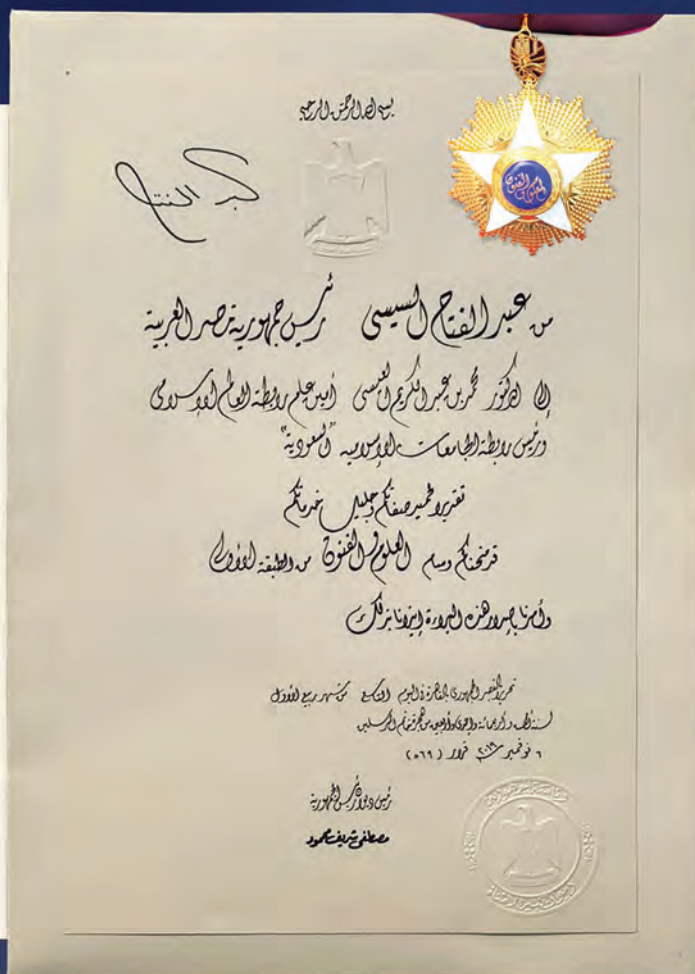 بسم الله الرحمن الرحيم
العلوم والفنون
من عبد الفتاح السيسى رئيس جمهورية مصر العربية
إلى الدكتور محمد بن عبد الكريم العيسى أمين عام رابطة العالم الإسلامى
ورئيس رابطة الجامعات الإسلامية "السعودية"
تقديرا لحميد صفاتكم وجليل خدماتكم
قد منحناكم وسام العلوم والفنون من الطبقة الأولى
وأمرنا بإصدار هذه البراءة إيذانا بذلك
تحريرا بالقصر الجمهورى بالقاهرة فى اليوم التاسع من شهر ربيع الأول
لسنة ألف وأربعمائة وإحدى وأربعين من هجرة خاتم المرسلين
٦ نوفمبر سنة ٢٠١٩ قرار (٥٦٩)
رئيس ديوان رئيس الجمهورية
مصطفى شريف محمود